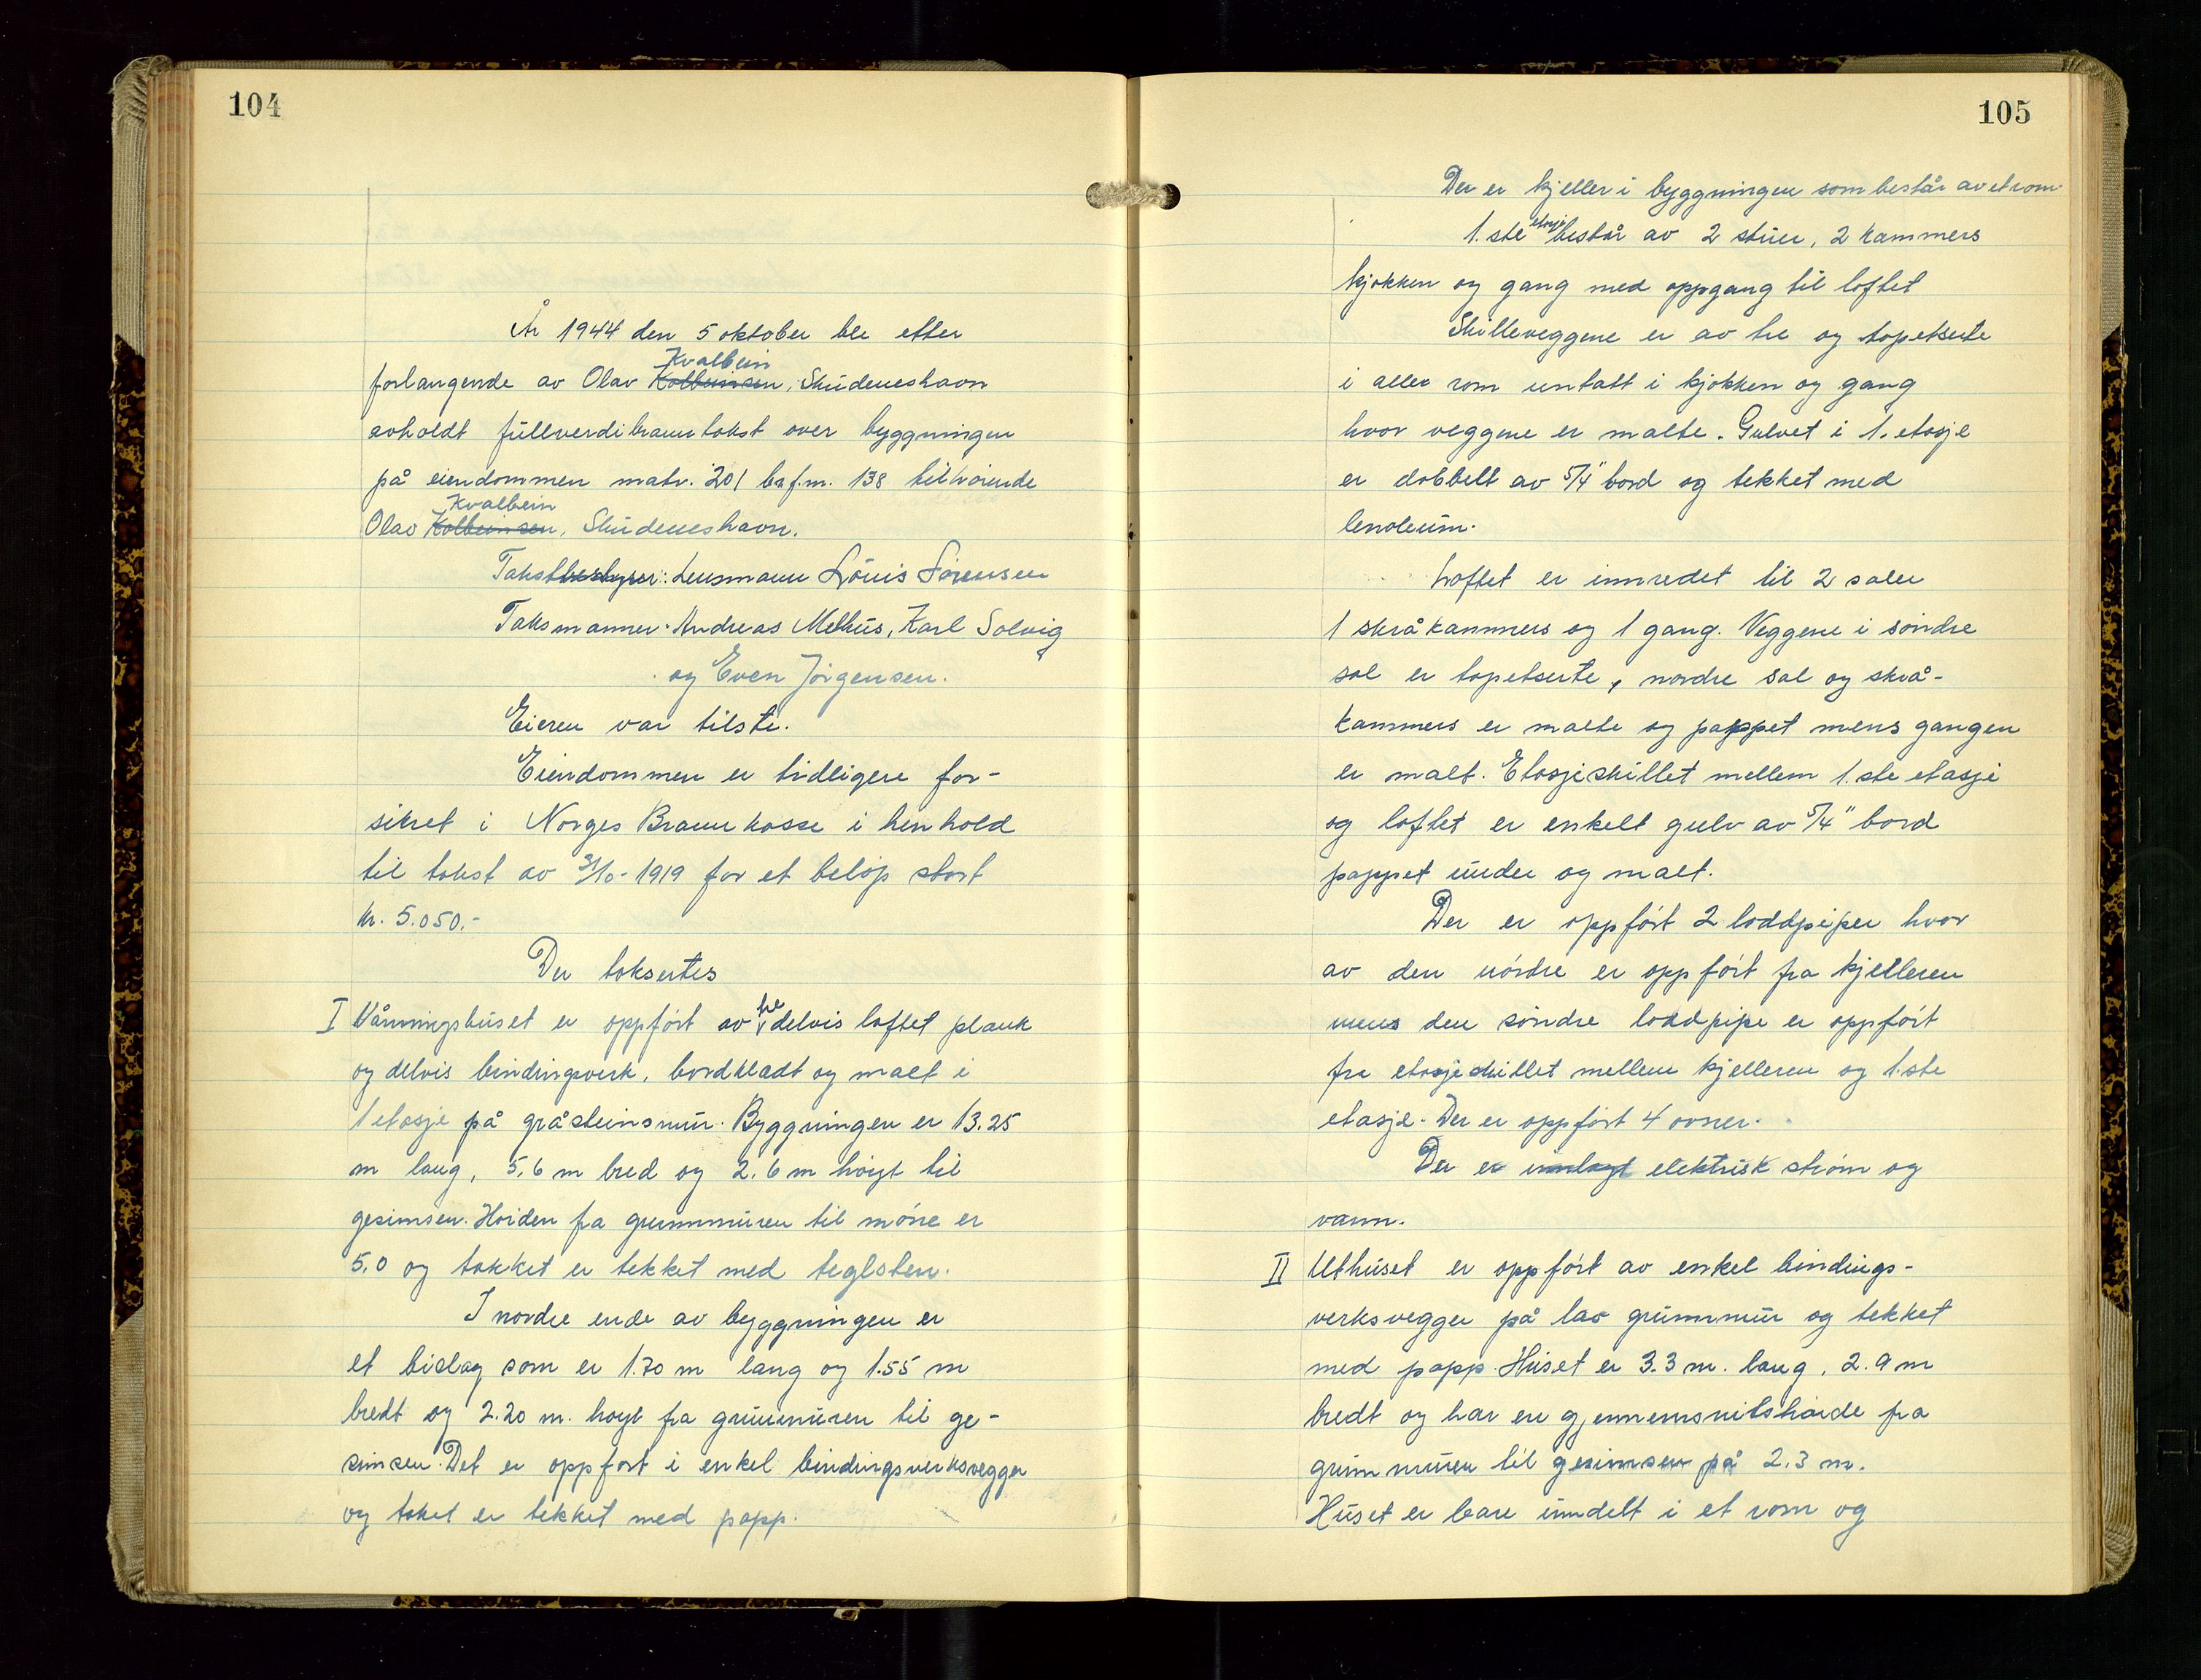 104
År 1944 den 5 oktober ble etter
Kvalbein
forlangende av Olav Kolbeinsen, Skudeneshavn
avholdt fullverdibranntakst over byggningen
på eiendommen matr. 201 brf.m. 138 tilhørende
Kvalbein
Olav Kolbeinsen, Skudeneshavn.
Takstbestyrer: Lensmann Louis Sørensen
Taksmanner: Andreas Melhus, Karl Solvig
og Even Jörgensen.
Eieren var tilste.
Eiendommen er tidligere for-
sikret i Norges Brannkasse i henhold
til takst av 31/10-1919 for et beløp stort
kr. 5.050.-
Der taksertes
I Våningshuset er oppført av tre delvis laftet plank
og delvis bindingsverk, bordkladt og malt i
1 etasje på gråsteinsmur. Byggningen er 13.25
m lang, 5,6 m bred og 2,6 m höigt til
gesimsen. Høiden fra grunnmuren til möne er
5,0 og takket er tekket med teglsten.
I nordre ende av byggningen er
et bislag som er 1.70 m lang og 1.55 m
bredt og 2.20 m. høyt fra grunnmuren til ge-
simsen. Det er oppført i enkel bindingsverksvegger
og taket er tekket med papp.
105
Der er kjeller i byggningen som består av et rom.
1. ste etasje består av 2 stuer, 2 kammers
kjøkken og gang med oppgang til loftet
Skilleveggene er av tre og tapetserte
i alle rom untatt i kjøkken og gang
hvor veggene er malte. Gulvet i 1. etasje
er dobbelt av 5/4" bord og tekket med
lenoleum.
Loftet er innredet til 2 saler
1 skråkammers og 1 gang. Veggene i söndre
sal er tapetserte, nordre sal og skrå-
kammers er malte og pappet mens gangen
er malt. Etasjeskillet mellem 1. ste etasje
og loftet er enkelt gulv av 5/4" bord
pappet under og malt.
Der er oppfört 2 loddpiper hvor
av den nórdre er oppfört fra kjelleren
mens den söndre loddpipe er oppfört
fra etasjeskillet mellem kjelleren og 1. ste
etasje. Der er oppført 4 ovner.
Der er innlagt elektrisk ström og
vann.
II Uthuset er oppført av enkel bindings-
verksvegger på las grunnmur og tekket
med papp. Huset er 3.3 m. lang, 2.9 m
bredt og har en gjennemsnitshöide fra
grunnmuren til gesimsen på 2.3 m.
Huset er bare inndelt i et rom og